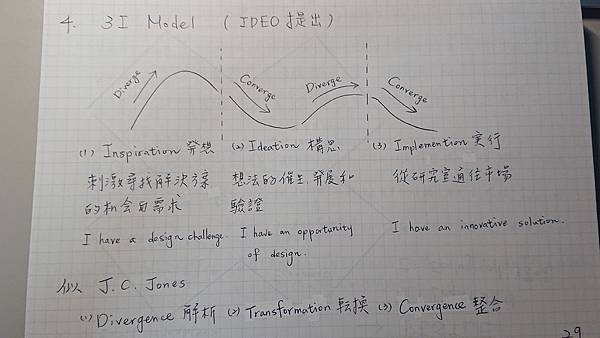 4. 3I Model (IDEO 提出)
Diverge Converge Diverge Converge
(1) Inspiration 發想 (2) Ideation 構思 (3) Implemention 實行
刺激尋找解決方案 想法的催生、發展和 從研究室通往市場
的机会與需求 驗證
I have a design challenge. I have an opportunity I have an innovative solution.
of design.
似 J.C. Jones
(1) Divergence 解析 (2) Transformation 転換 (3) Convergence 整合
29